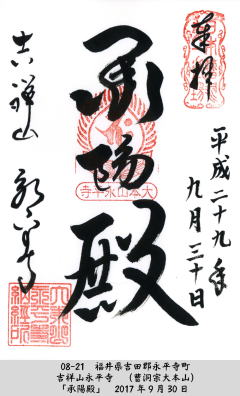 奉拝
平成二十九年
九月三十日
承陽殿
大本山永平寺
吉祥山
永平寺
08-21 福井県吉田郡永平寺町
吉祥山永平寺 （曹洞宗大本山）
「承陽殿」 2017年9月30日